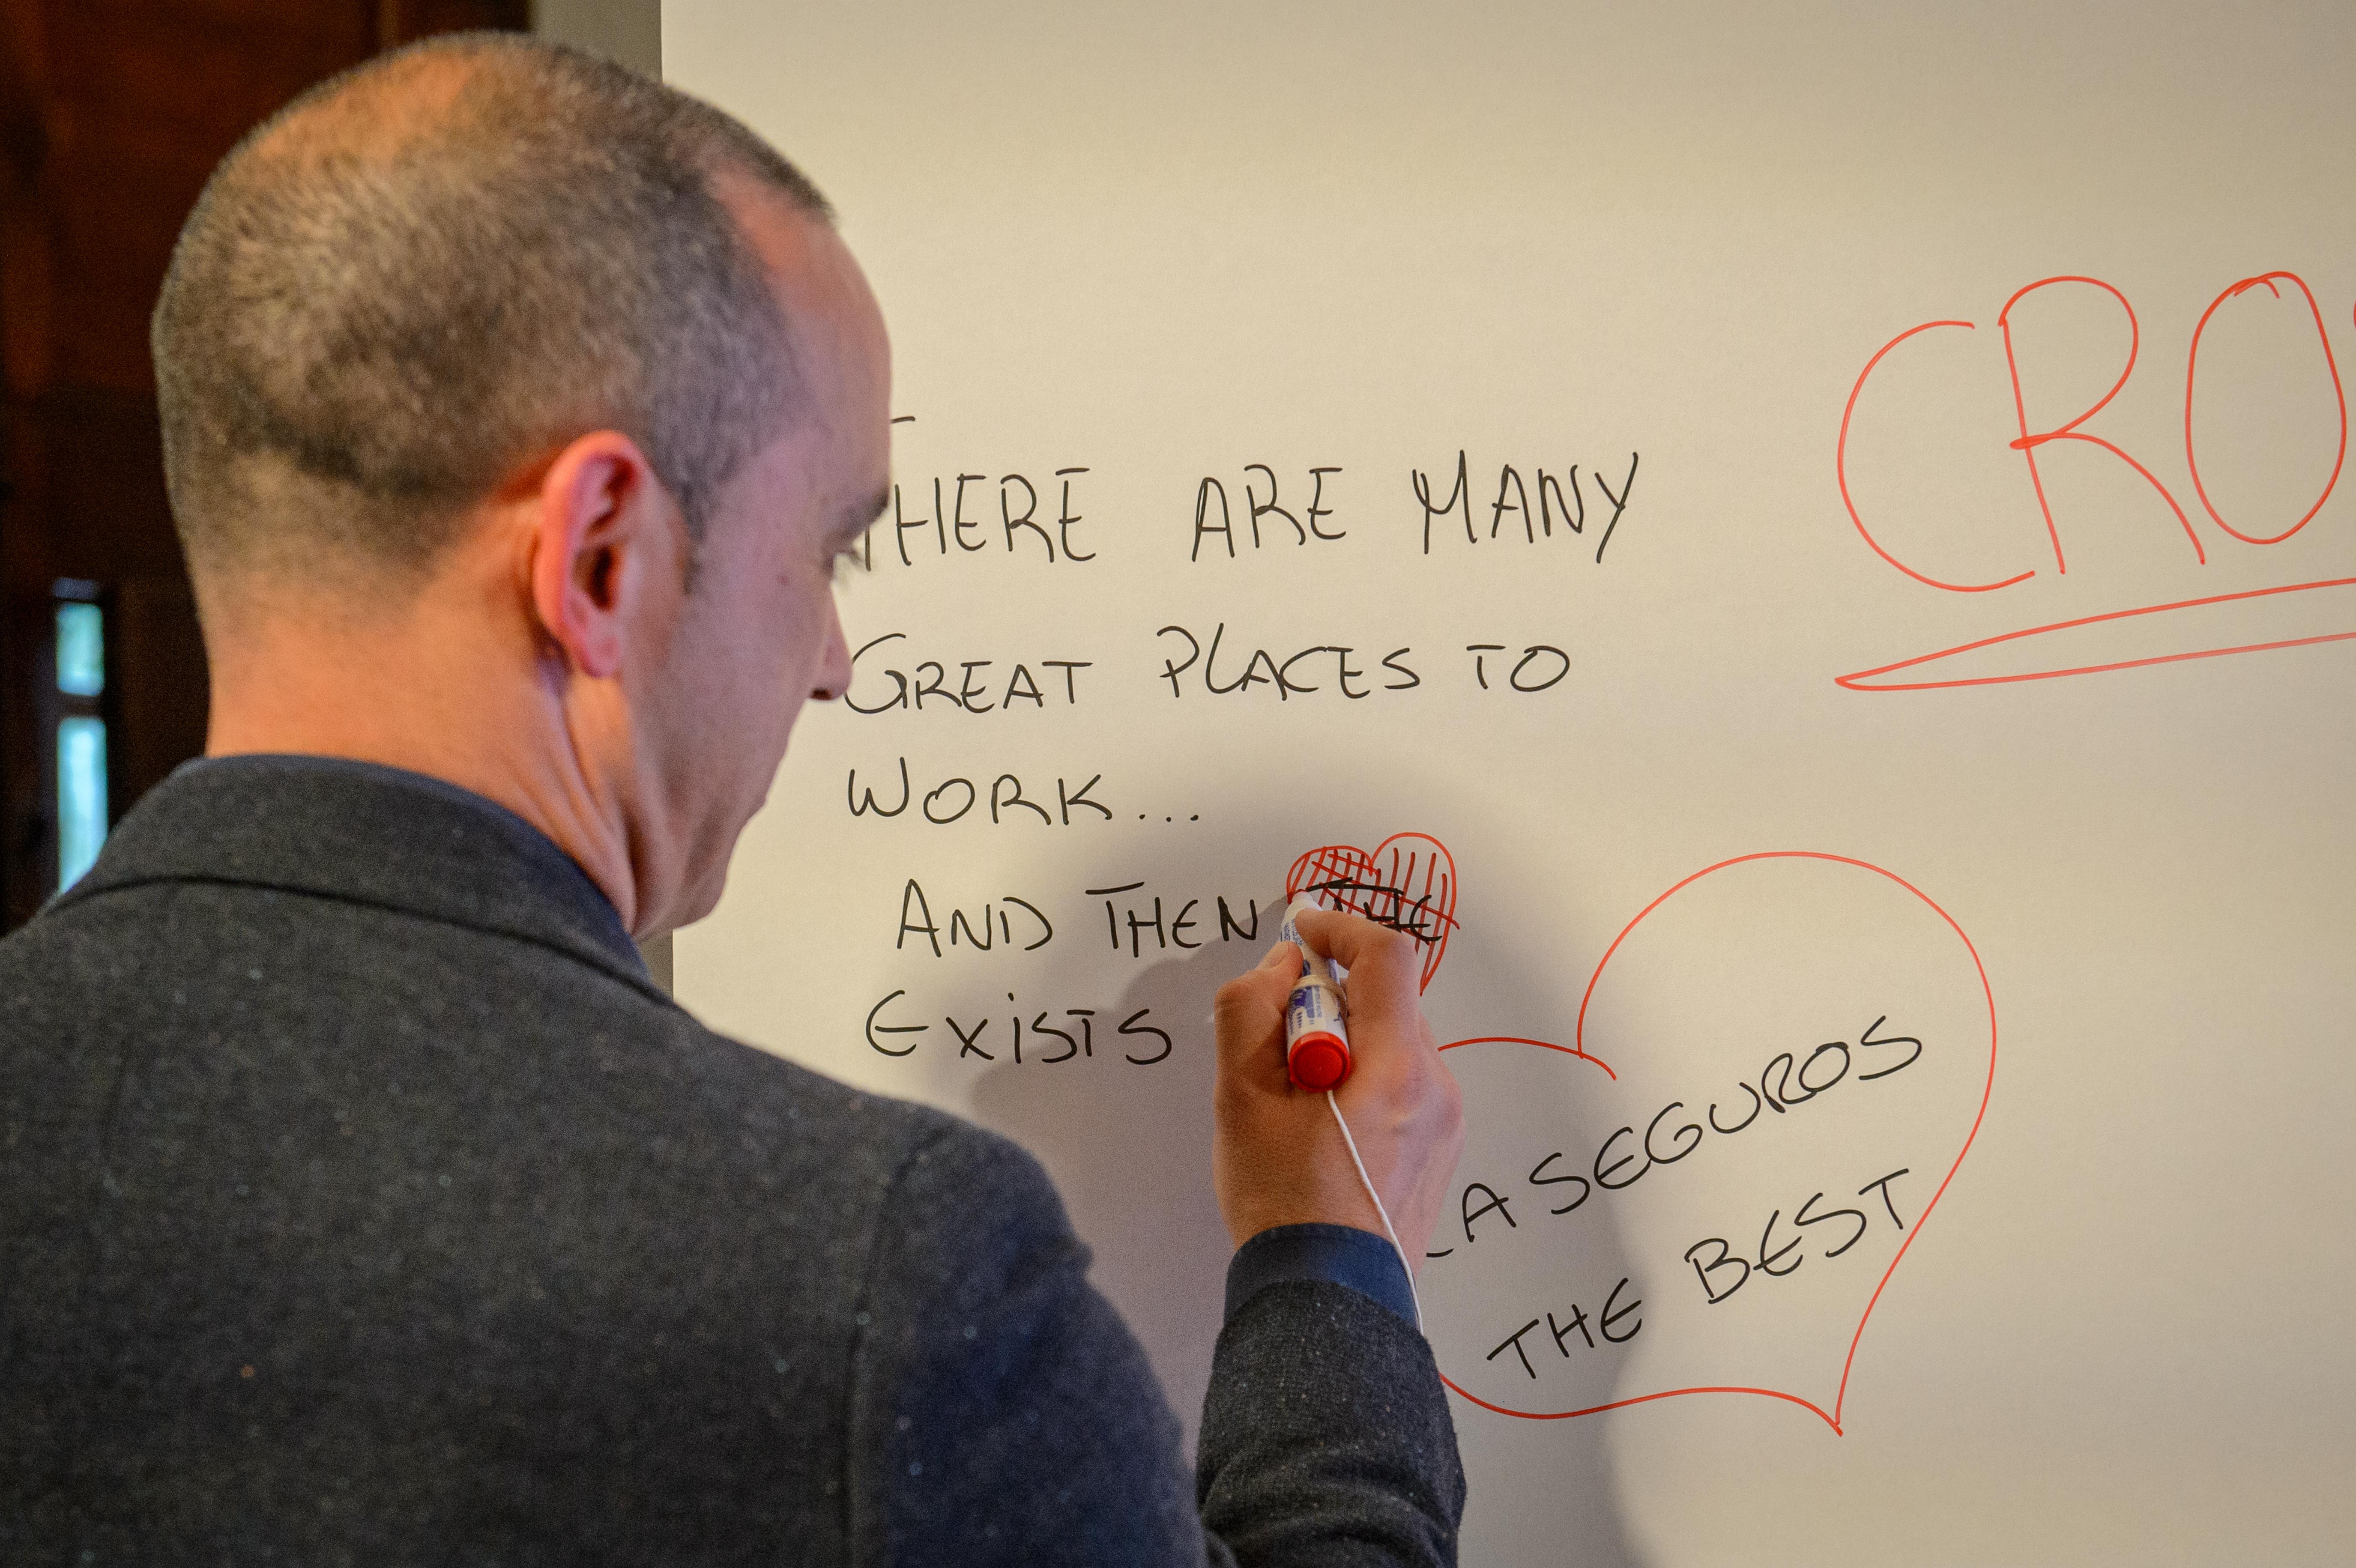 CRO
THERE ARE MANY
GREAT PLACES TO
WORK...
AND THEN THE
EXISTS
LA SEGUROS
THE BEST